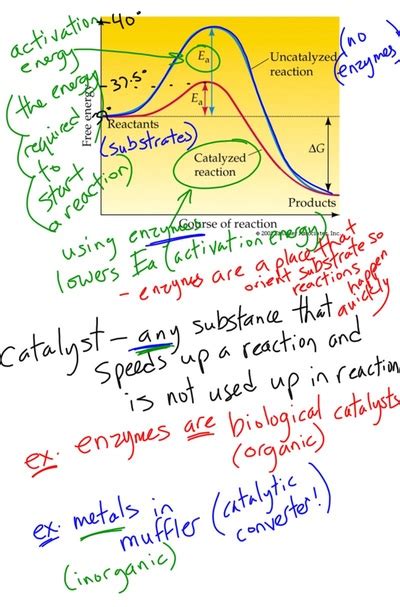 activation
energy
(the energy
required
to
start
a reaction)
40°
37.5°
Free energy
Ea
Ea
Uncatalyzed
reaction
(no
enzymes)
Reactants
(substrates)
Catalyzed
reaction
ΔG
Products
Course of reaction
using enzymes
lowers Ea (activation energy)
- enzymes are a place that
orient substrate so
reactions
happen
quickly
Catalyst - any substance that
speeds up a reaction and
is not used up in reaction
ex. enzymes are biological catalysts
(organic)
ex. metals in
muffler (catalytic
converter!)
(inorganic)